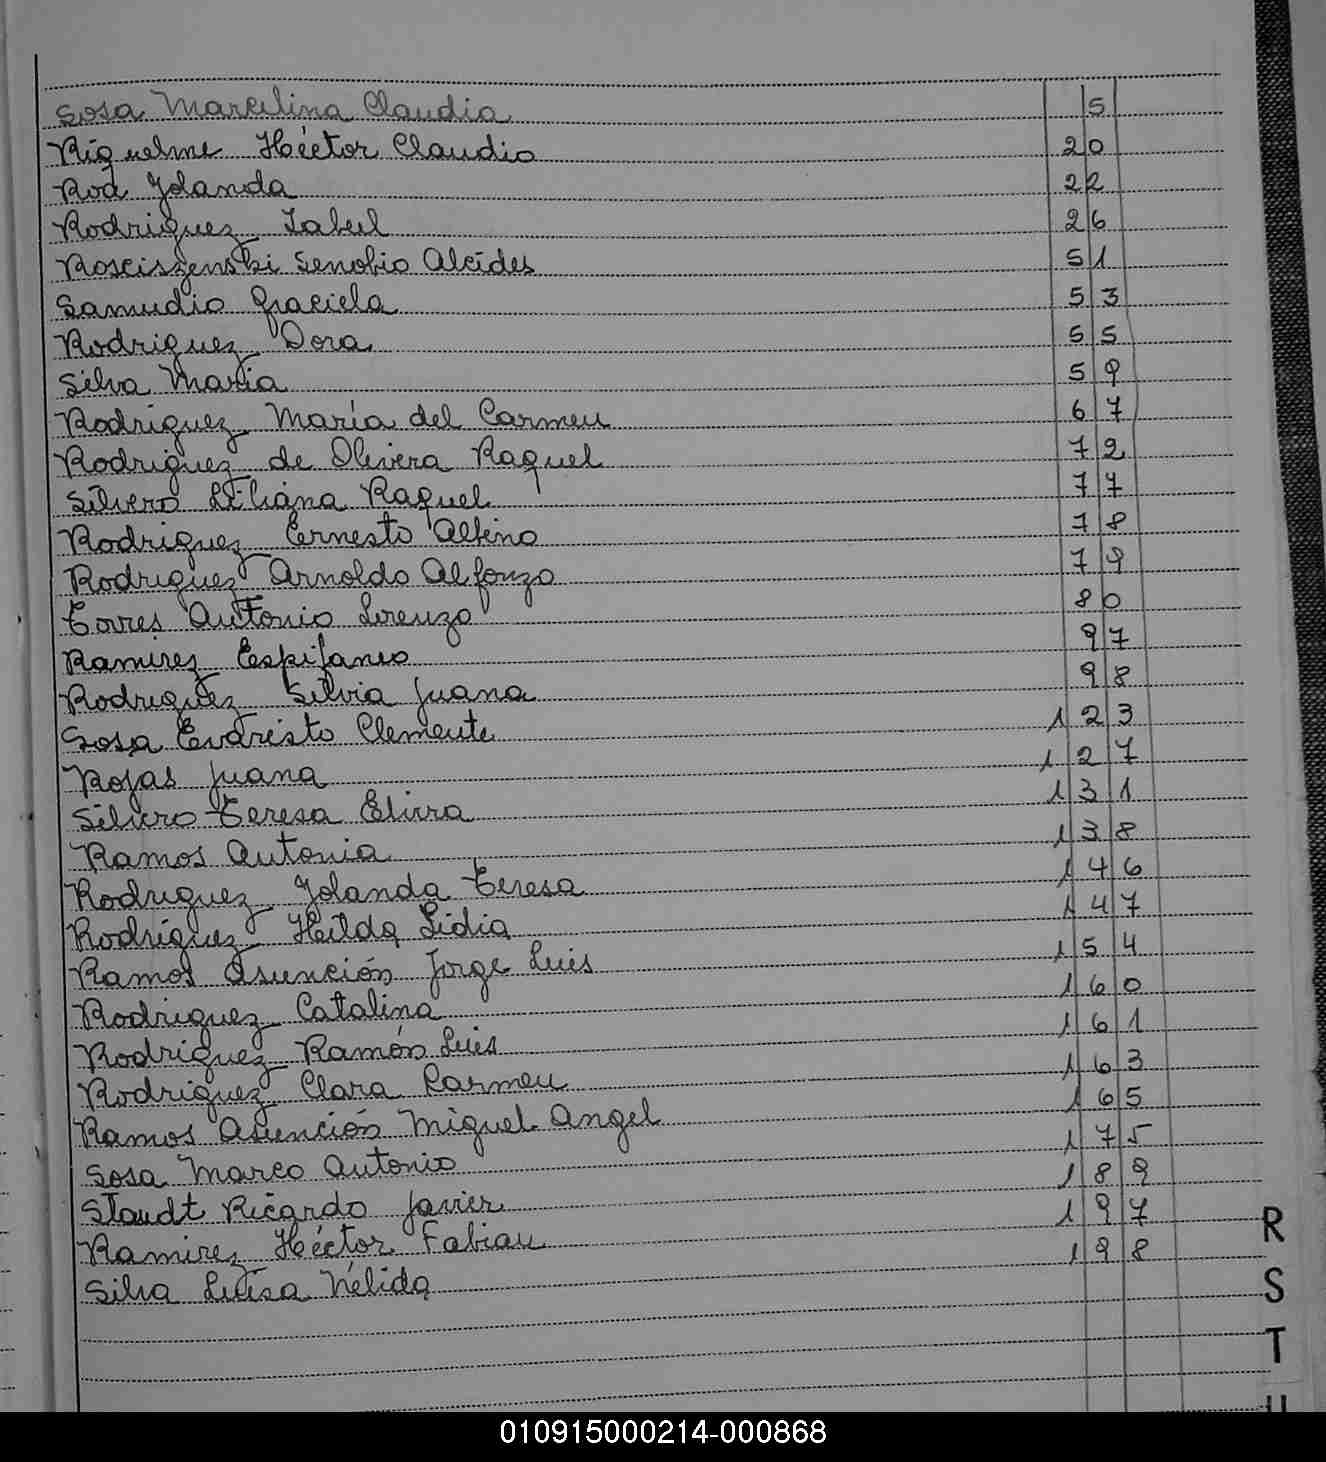 Sosa Marcelina Claudia 5
Riquelme Héctor Claudio 20
Roa Yolanda 22
Rodriguez Isabel 26
Rosciszenski Senobio Alcides 51
Samudio Graciela 53
Rodriguez Dora 55
Silva Maria 59
Rodriguez María del Carmen 67
Rodriguez de Olivera Raquel 72
Silvero Liliana Raquel 77
Rodriguez Ernesto Albino 78
Rodriguez Arnoldo Alfonzo 79
Torres Antonio Lorenzo 80
Ramirez Espifanio 97
Rodriguez Silvia Juana 98
Sosa Evaristo Clemente 123
Rojas Juana 127
Silvero Teresa Elvira 131
Ramos Antonia 138
Rodriguez Yolanda Teresa 146
Rodriguez Hilda Lidia 147
Ramos Asunción Jorge Luis 154
Rodriguez Catalina 160
Rodriguez Ramón Luis 161
Rodriguez Clara Carmen 163
Ramos Asunción Miguel Angel 165
Sosa Marco Antonio 175
Staudt Ricardo Javier 189
Ramirez Héctor Fabian 197
Silva Luisa Nélida 198
R
S
T
U
010915000214-000868